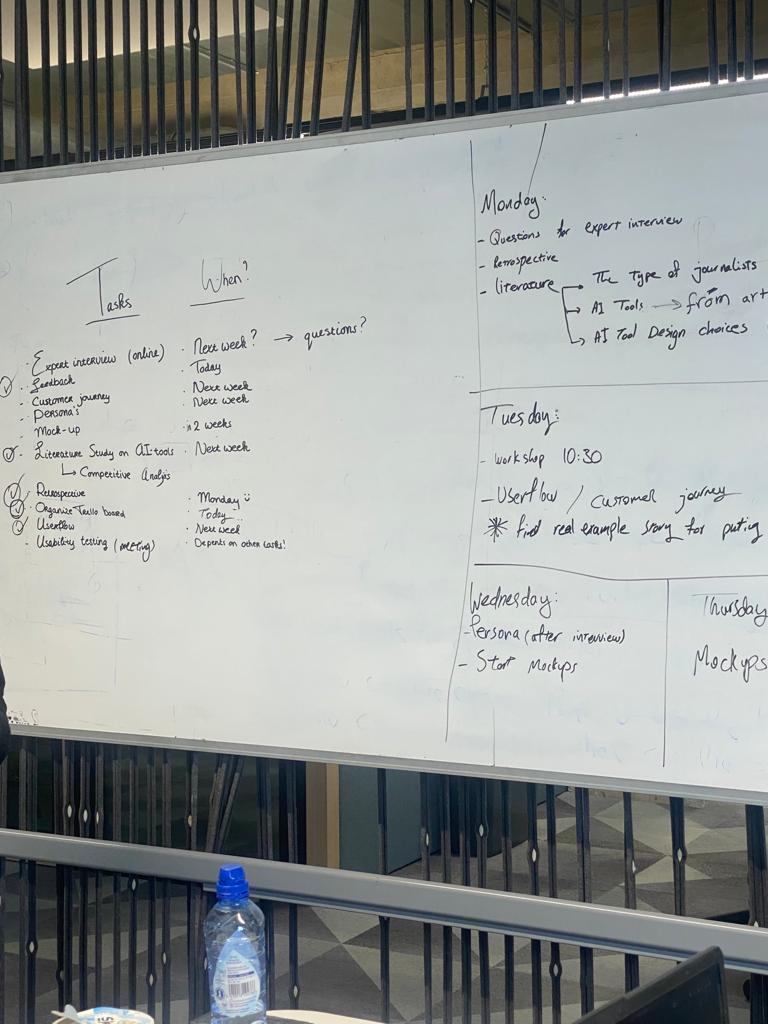 Tasks
When?
Expert interview (online) · Next week? → questions?
· Feedback · Today
· Customer journey · Next week
- Persona's · Next week
- Mock-up · in 2 weeks
· Literature Study on AI-tools · Next week
↳ Competitive Analysis
· Retrospective · Monday
· Organize Trello board · Today
· Userflow · Next week
- Usability testing (meeting) · Depents on other tasks!
Monday:
- Questions for expert interview
- Retrospective
- literature → The Type of journalists
→ AI Tools → from art
→ AI Tool Design choices
Tuesday:
- workshop 10:30
- Userflow / customer journey
* find real example story for puting
Wednesday:
- Persona (after interview)
- Start Mockups
Thursday
Mockups